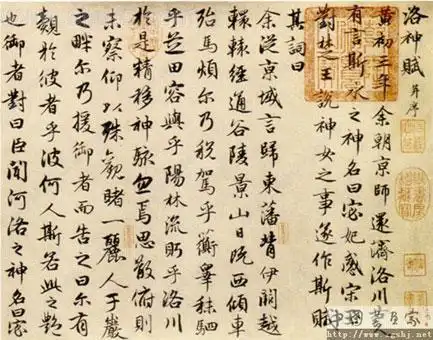 洛神賦 并序
黃初三年余朝京師還濟洛川
有言斯水之神名曰宓妃感宋玉
對楚王說神女之事遂作斯賦
其詞曰
余從京域言歸東藩背伊闕越
轘轅經通谷陵景山日既西傾車
殆馬煩尔乃稅駕乎蘅皋秣駟
乎芝田容與乎陽林流眄乎洛川
於是精移神駭忽焉思散俯則
未察仰以殊觀睹一麗人于巖
之畔尔乃援御者而告之曰尔有
覿於彼者乎彼何人斯若此之豔
也御者對曰臣聞河洛之神名曰宓
http://www.zgshj.net